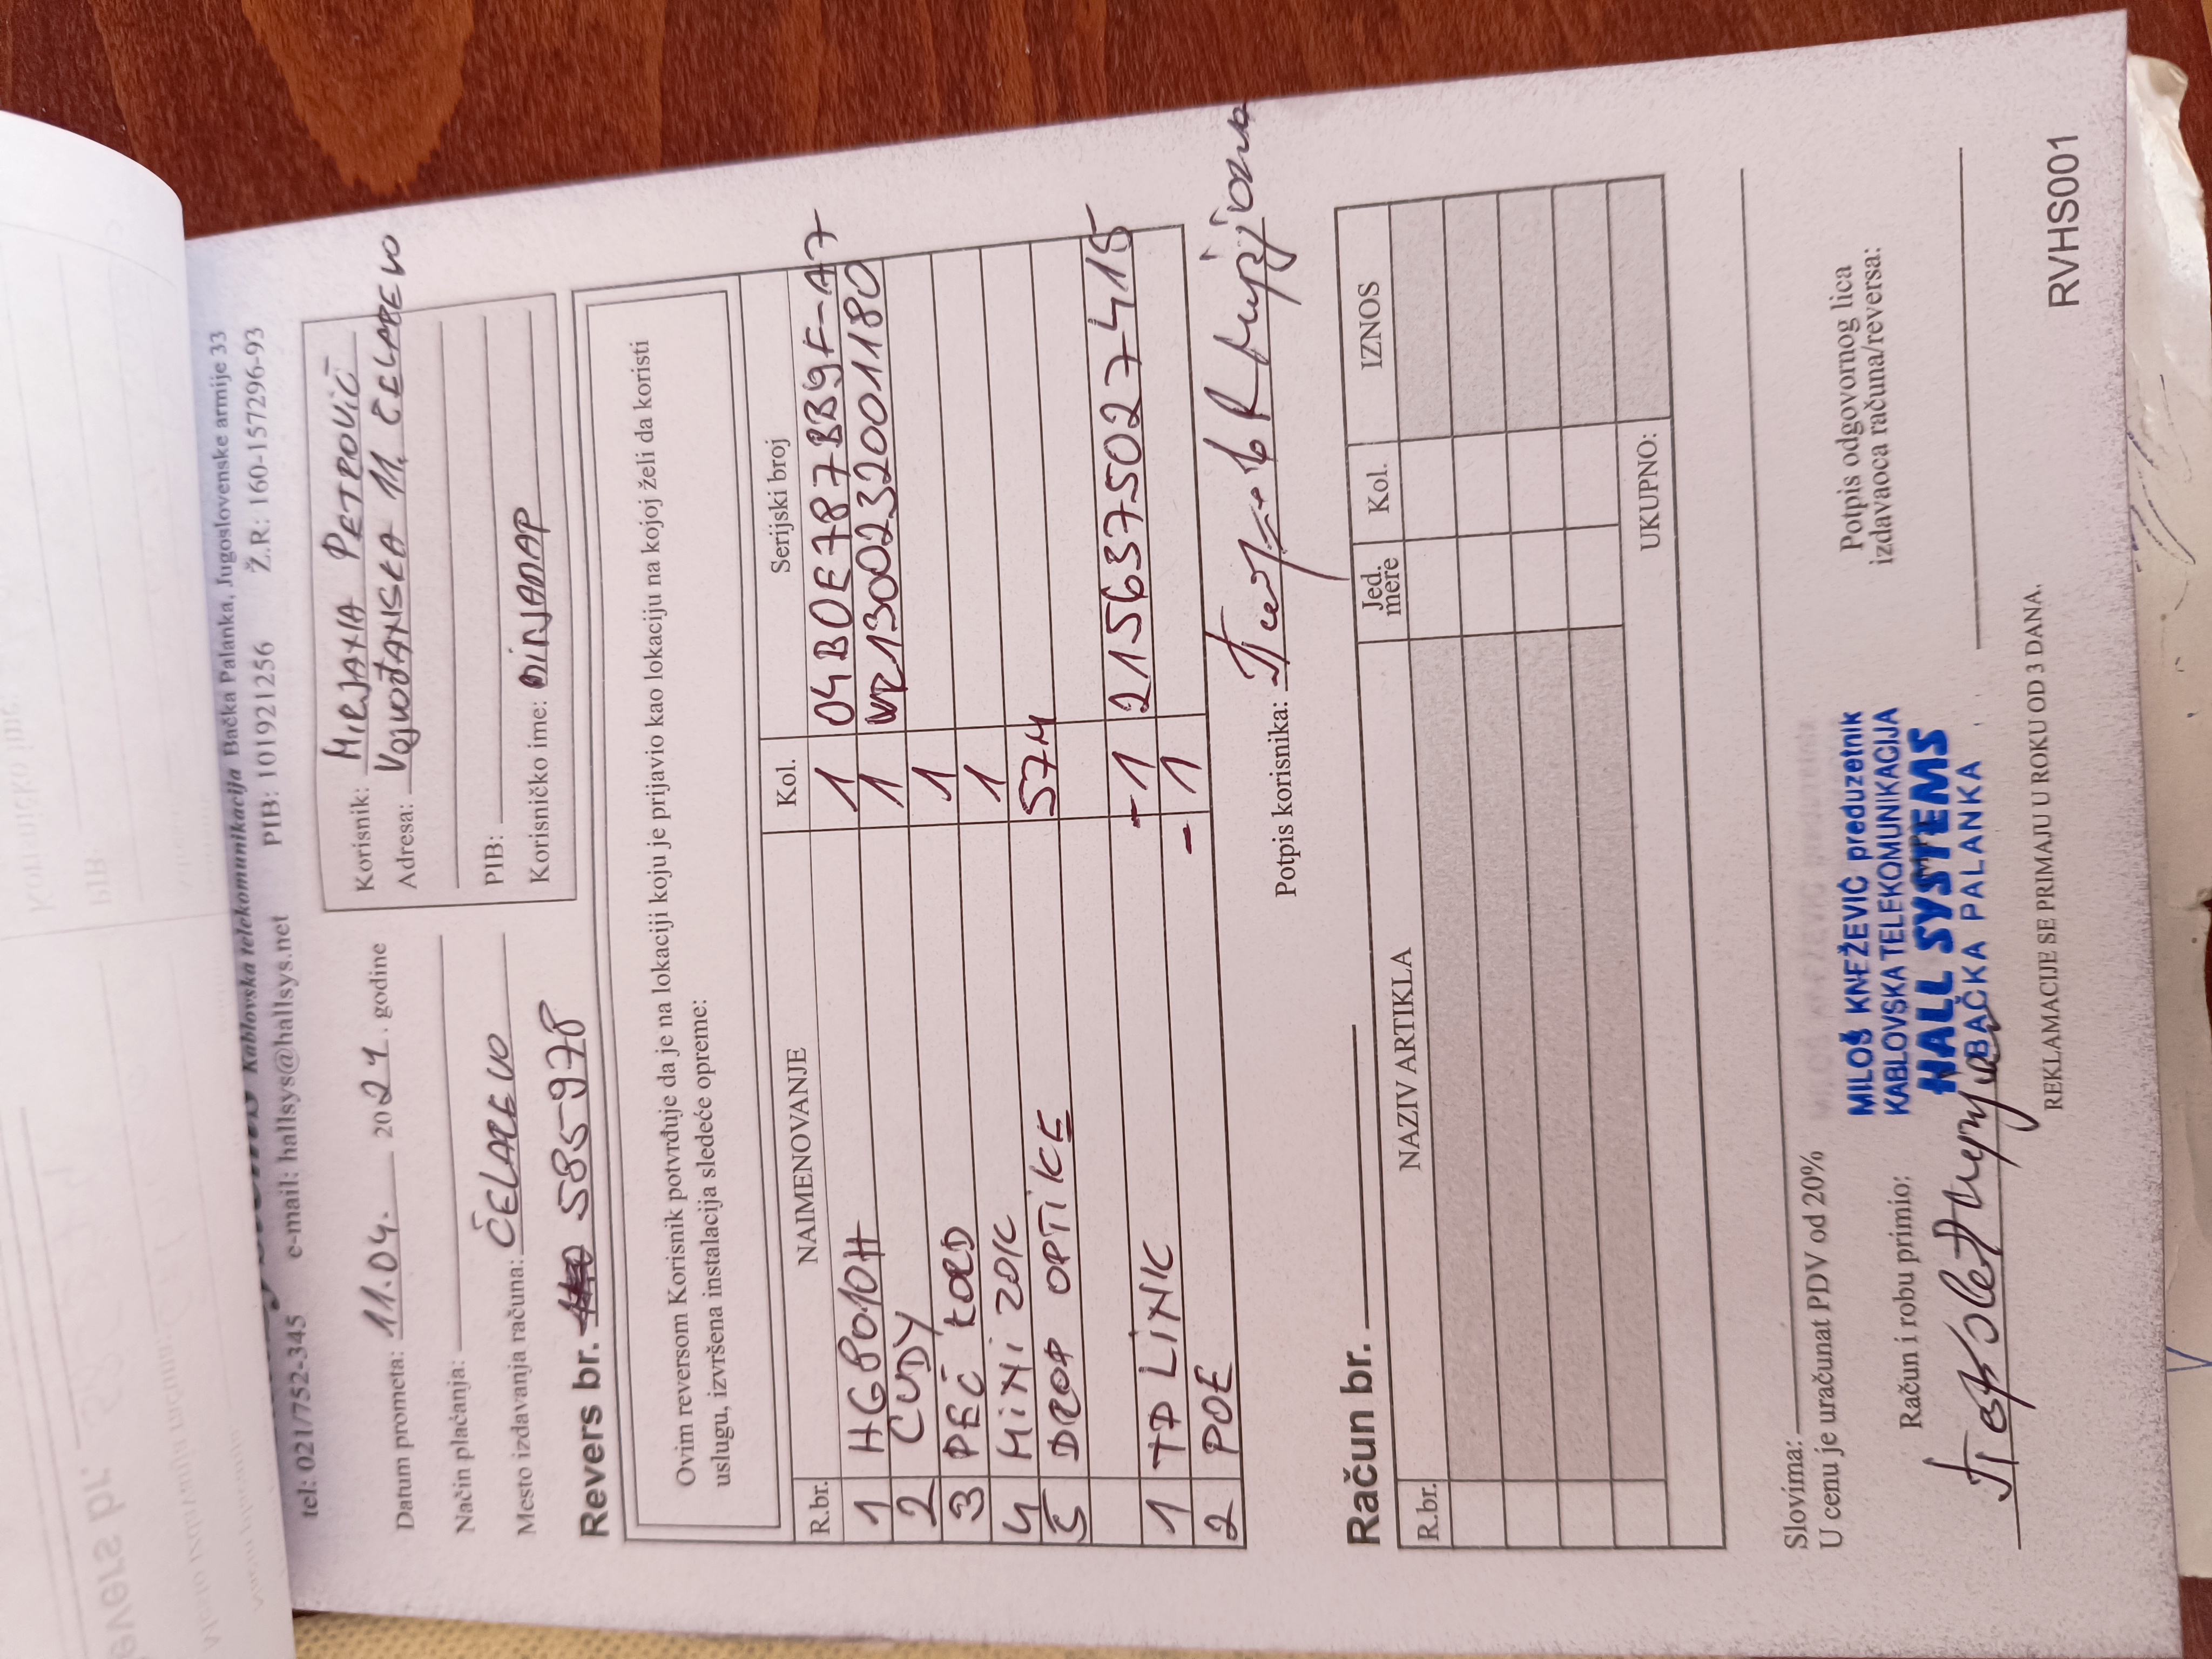 kablovska telekomunikacija Bačka Palanka, Jugoslovenske armije 33
tel: 021/752-345 e-mail: hallsys@hallsys.net PIB: 101921256 Ž.R: 160-157296-93
Datum prometa: 11.04. 2024. godine
Način plaćanja:
Mesto izdavanja računa: ČELAREVO
Korisnik: MIRJANA PETROVIĆ
Adresa: VOJVOĐANSKA 11, ČELAREVO
PIB:
Korisničko ime:
Revers br. 585-978
Ovim reversom Korisnik potvrđuje da je na lokaciji koju je prijavio kao lokaciju na kojoj želi da koristi
uslugu, izvršena instalacija sledeće opreme:
R.br. NAIMENOVANJE Kol. Serijski broj
1 HG8010H 1 04B0E787BB9F-A7
2 CUDY 1 WR1300232001180
3 PEČ KORD 1
4 MINI ZOK 1
5 DROP OPTIKE 57M
1 TP LINK -1 2156375027415
2 POE -1
Potpis korisnika:
Račun br.
R.br. NAZIV ARTIKLA Jed. mere Kol. IZNOS
UKUPNO:
Slovima:
U cenu je uračunat PDV od 20%
Račun i robu primio:
MILOŠ KNEŽEVIĆ preduzetnik
KABLOVSKA TELEKOMUNIKACIJA
HALL SYSTEMS
BAČKA PALANKA
Potpis odgovornog lica
izdavaoca računa/reversa:
REKLAMACIJE SE PRIMAJU U ROKU OD 3 DANA.
RVHS001